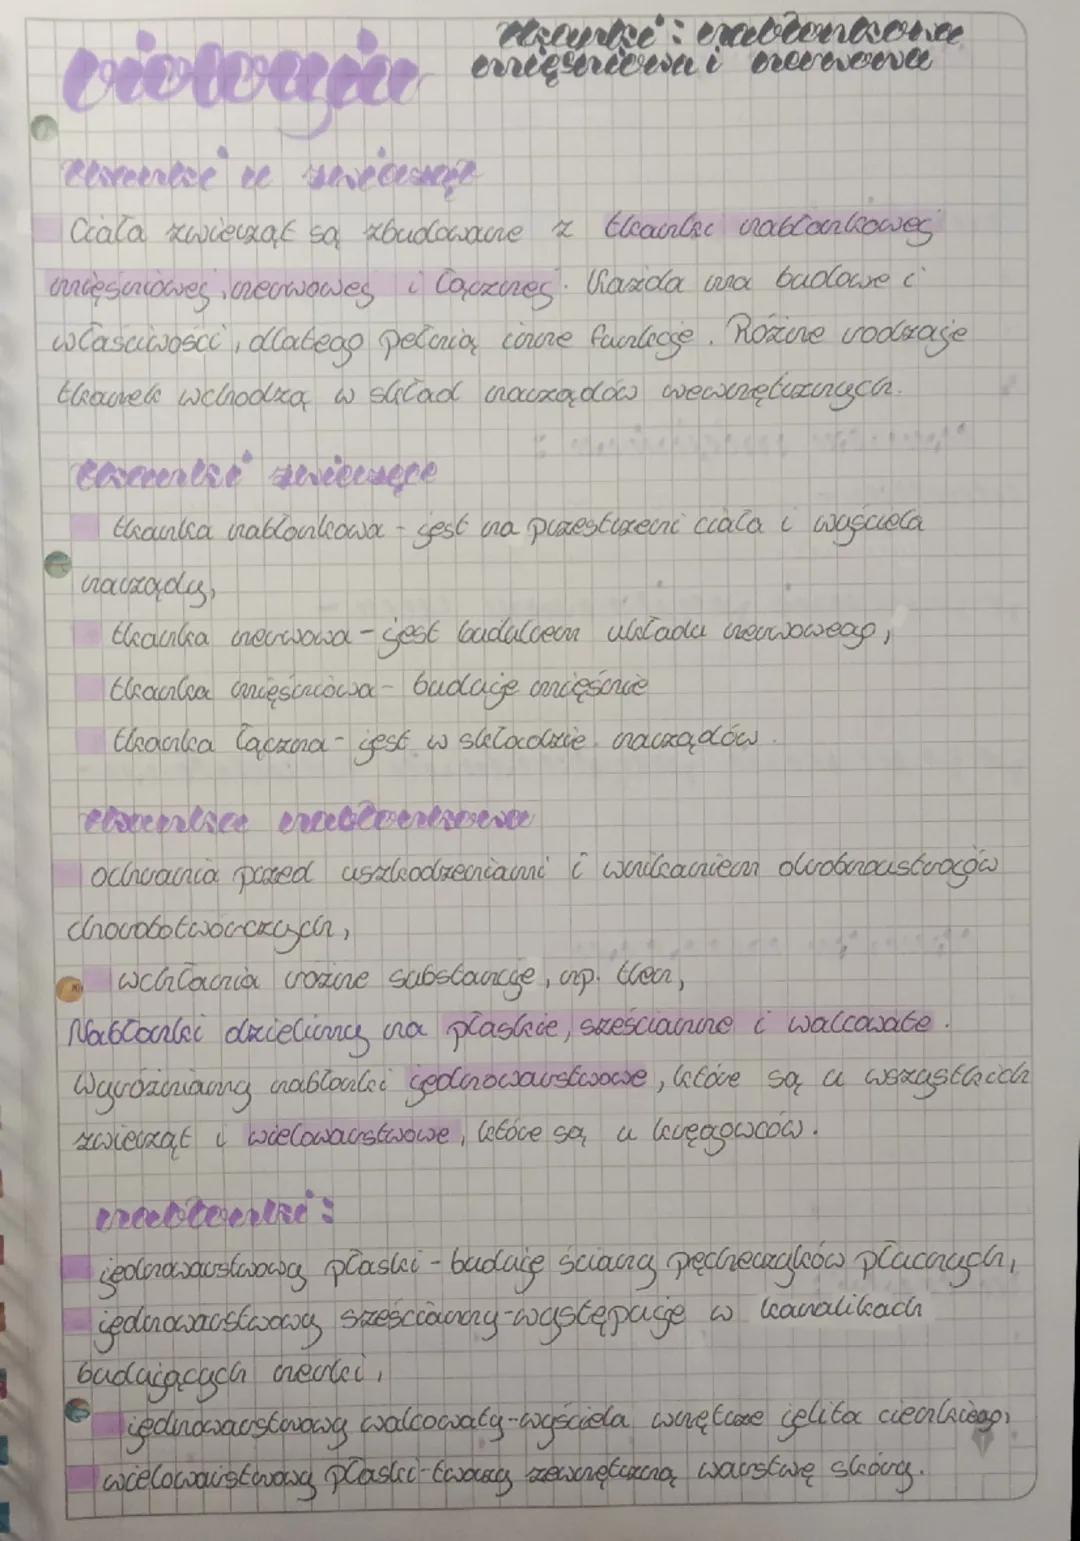 biologia
tkanki: nabłonkowa
mięśniowa i nerwowa
tkanki u zwierząt
Ciała zwierząt są zbudowane z tkanki nabłonkowej
mięśniowej, nerwowej i łącznej. Każda ma budowe i
właściwości, dlatego pełnią inne funkcje. Różne rodzaje
tkanek wchodzą w skład narządów wewnętrznych.
tkanki zwierzęce
tkanka nabłonkowa - jest na przestrzeni ciała i wyściela
narządy,
tkanka nerwowa - jest budulcem układu nerwowego,
tkanka mięśniowa - buduje mięśnie
tkanka łączna - jest w składzie narządów.
tkanka nabłonkowa
ochrania przed uszkodzeniami i wnikaniem drobnoustrojów
chorobotwórczych,
wchłania różne substancje, np. tlen,
Nabłonki dzielimy na płaskie, sześcianne i walcowate.
Wyróżniamy nabłonki jednowarstwowe, które są u wszystkich
zwierząt i wielowarstwowe, które są u kręgowców.
nabłonki:
jednowarstwowy płaski - buduje ściany pęcherzyków płucnych,
jednowarstwowy sześcianny - występuje w kanalikach
budujących nerki,
jednowarstwowy walcowaty - wyściela wnętrze jelita cienkiego,
wielowarstwowy płaski - tworzy zewnętrzną warstwę skóry.